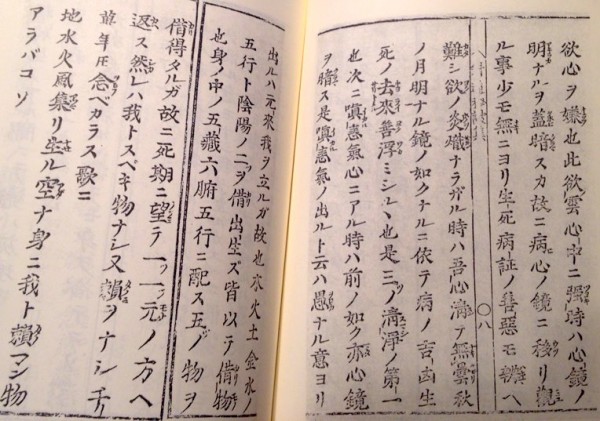 欲心ヲ嫌也此欲雲心中ニ強時ハ心鏡ノ
明ナルヲ蓋暗スカ故ニ病心ノ鏡ニ移リ觀
ル事少モ無ニヨリ生死病証ノ善惡モ辨ヘ
〇八
難シ欲ノ炎熾ナラガル時ハ吾心淸テ無曇秋
ノ月明ナル鏡ノ如クナルニ依テ病ノ吉凶生
死ノ去來善浮ミシルヽ也是三ノ淸淨ノ第一
也次ニ嗔恚氣心ニアル時ハ前ノ如ク亦心鏡
ヲ暗ス是嗔恚氣ノ出ルト云ハ愚ナル意ヨリ
出ルハ元來我ヲ立ルガ故也木火土金水ノ
五行ト陰陽ノ二ヲ借出生ズ皆以テ借物
也身ノ中ノ五藏六腑五行ニ配ス五ノ物ヲ
借得タルガ故ニ死期ニ望テ一ツ一ツ元ノ方ヘ
返ス然レハ我トスベキ物ナシ又賴ヲナシ千
年モ念ベカラス歌ニ
地水火風集リ生ル空ナ身ニ我ト賴マン物
アラバコソ